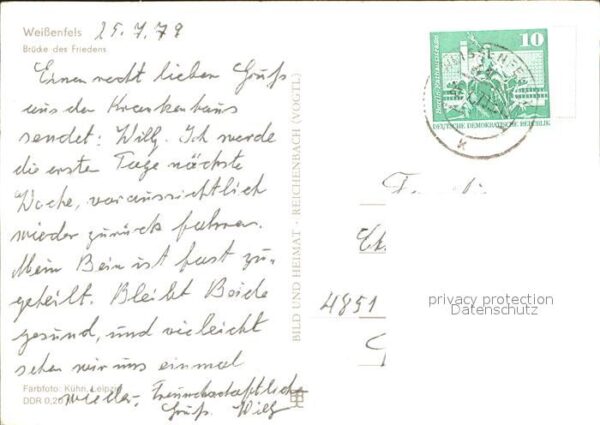 Weißenfels 25.7.79
Brücke des Friedens
Einen recht lieben Gruß
aus dem Krankenhaus
sendet: Willy. Ich werde
die ersten Tage nächste
Woche, voraussichtlich
wieder zurück fahren.
Mein Bein ist fast zu-
geheilt. Bleibt Beide
gesund, und vieleicht
sehen wir uns einmal
wieder. Freundschaftliche
Grüße. Willy
Farbfoto: Kühn, Leipzig
DDR 0,20
BILD UND HEIMAT - REICHENBACH (VOGTL)
10
Berlin, Rathausstraße
DEUTSCHE DEMOKRATISCHE REPUBLIK
K
4851
privacy protection
Datenschutz